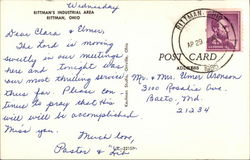 Wednesday
RITTMAN'S INDUSTRIAL AREA
RITTMAN, OHIO
Dear Clara & Elmer,
The Lord is moving
sweetly in our meetings
here and tonight was
our most thrilling service
thus far. Please con-
tinue to pray that His
will will be accomplished.
Miss you.
Much love,
Pastor &
RITTMAN, OHIO
APR 29
POST CARD
ADDRESS
Mr. & Mrs. Elmer Aronson
3100 Rosalie Ave.
Balto, Md.
21234